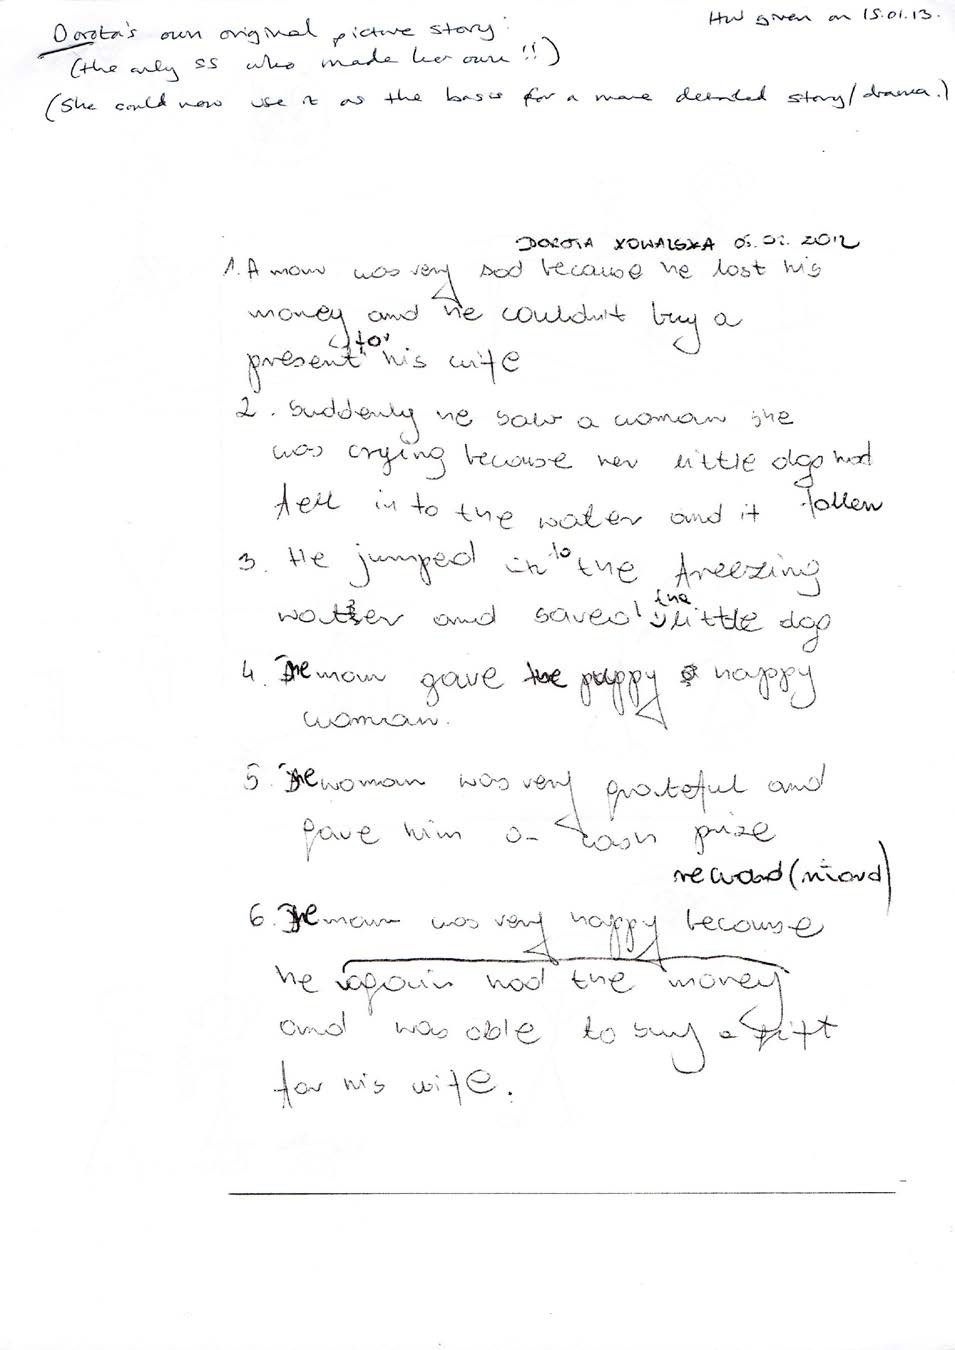 Dorota's own original picture story:
HW given on 15.01.13.
(the only SS who made her own!!)
(She could now use it as the basis for a more detailed story/drama.)
DOROTA KOWALSKA 05.02.2012
1. A man was very sad because he lost his
money and he couldn't buy a
for
present his wife
2. Suddenly he saw a woman she
was crying because her little dgo had
fell in to the water and it fallen
3. He jumped in to the freezing
the
water and saved little dgo
4. The man gave the puppy happy
woman.
5. The woman was very grateful and
gave him a cash prize
reward (riłord)
6. The man was very happy because
he again had the money
and was able to buy a gift
for his wife.